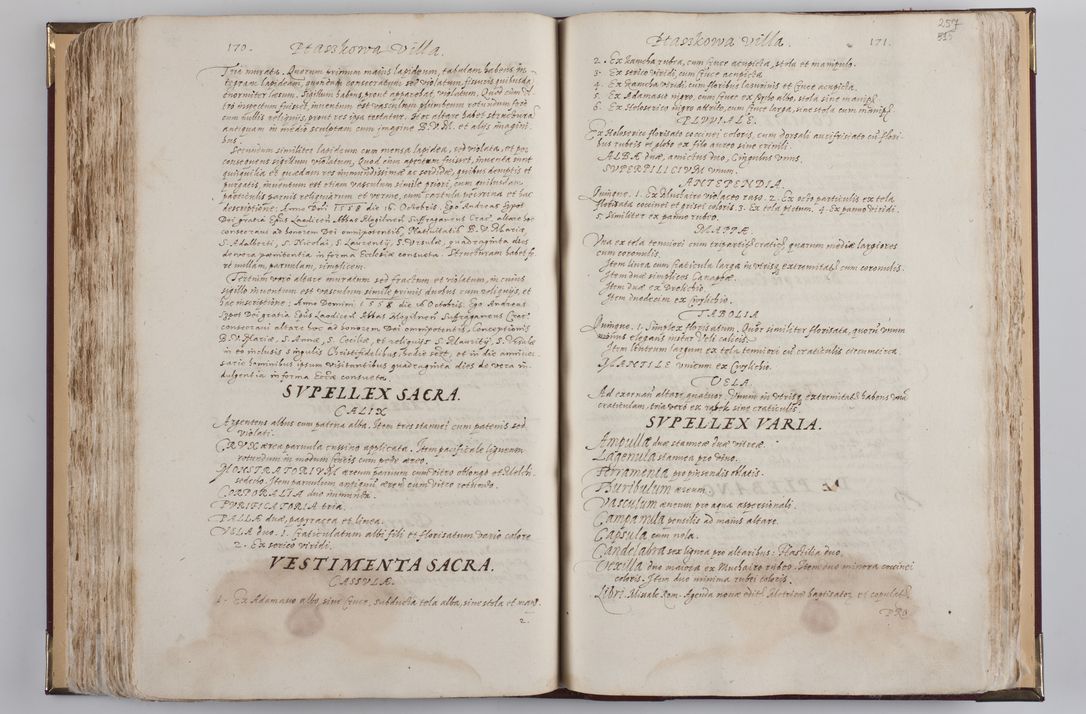 170. Ptaszkowa Villa.
Tria murata. Quorum primum maius lapideum, tabulam habens in-
tegram lapideam, quondam consecratum sed violatum, fissuris quibusdã
enormiter læsum. Sigillum habens, prout apparebat, violatum. Quod cum ul-
tro inspectum fuisset, inventum est vasculum plumbeum rotundum
cum nullis reliquijs, prout res ipsa testatur. Hoc altare habet structuram
antiquam in medio sculptam cum imagine B.V.M. et alijs imagini-
bus.
Secundum similiter lapideum cum mensa lapidea, sed violata, et per
consequens sigillum violatum, Quod cum apertum fuisset, inventa sunt
quisquilia et quædam res immundissimæ ac sordidæ, quibus demptis et
purgatis, inventum est etiam vasculum simile priori, cum quibusdam
particulis parvis reliquiarum et verme, cum cartula
descriptione: Anno Dnî 1558 die 16 Octobris. Ego Andreas Szpot
Dei gratia Epûs Laodiceñ Abbas Mogilneñ Suffraganeus Crac. altare hoc
consecravi ad honorem Dei omnipotentis, Nativitatis B.V. Mariæ,
S. Adalberti, S. Nicolai, S. Laurentij, S. Ursulæ, quadraginta dies
de vera pœnitentia in forma Ecclesiæ consueta. Structuram habet
nullam, parvulam, simplicem.
Tertium vero altare muratum sed fractum et violatum, in cuius
sigillo inventum est vasculum simile primis duobus cum reliquijs, et
hac inscriptione: Anno Domini 1558 die 16 Octobris. Ego Andreas
Szpot Dei gratia Epûs Laodiceñ Abbas Mogilneñ Suffraganeus Crac.
consecravi altare hoc ad honorem Dei omnipotentis, Conceptionis
B.V. Mariæ, S. Annæ, S. Ceciliæ, et reliquijs S. Mauritij, S. Ursulæ
in eo inclusis singulis Christifidelibus, hodie sept, et in die anniver-
sario hominibus ipsum visitantibus quadraginta dies de vera in-
dulgentia in forma Eccæ consueta.
SVPELLEX SACRA.
CALIX
Argenteus albus cum patena alba. Item tres stannei cum patenis sed
violati.
CRVX ærea parvula cuprino applicata. Item pacificale ligneum
rotundum in modum crucis cum pede æreo.
MONSTRATORIVM æreum parvum cum vitro oblongo et Melch-
sedecho. Item parvulum antiquũ æreũ cum vitro rotundo.
CORPORALIA duo munda.
PVRIFICATORIA tria.
PALLÆ duæ, papyracea et linea.
VELA duo. 1. Craticulatum albi fili et florisatum vario colore
2. Ex serico viridi.
VESTIMENTA SACRA.
CASSVLÆ.
1. Ex Adamasco albo, sine cruce, subducta tela alba, sine stola et manip.
2.
257
Ptaszkowa Villa. 171.
2. Ex kamcha rubra, cum cruce acupicta, stola et manipulo.
3. Ex serico viridi, cum cruce acupicta.
4. Ex kamcha viridi cum floribus lasurinis et cruce acupicta.
5. Ex Adamasco nigro, cum cruce ex albo, stola sine manip.
6. Ex Holoserico nigro attrito, cum cruce larga, sine stola cum manip.
PLVVIALE.
Ex Holoserico florisato coccinei coloris, cum dorsali aurifrisiato cũ flori-
bus rubeis et globo ex filo aureo sine crinili.
ALBÆ duæ, amictus duo, Cingulus unus.
SVPERPILICIVM unum.
ANTEPENDIA.
Quinque. 1. Ex Mulaire violaceo raso. 2. Ex octo particulis ex tela
florisata coccinei et grisei coloris. 3. Ex tela pictum. 4. Ex panno viridi.
5. similiter ex panno rubro.
MAPPÆ.
Vna ex tela tenuiori cum tripartitis craticis quarum mediæ largiores
cum coronulis.
Item linea cum craticula larga in utrisque extremitatibus cum coronulis.
Item duæ simplices Canappæ.
Item duæ ex Drelichio.
Item duodecim ex Cwylichio.
TABOLIA
Quinque. 1. Simplex florisatum. Quatuor similiter florisata, quorũ unum
minus elegans instar Veli calicis.
Item linteum largum ex tela tenuiori cũ craticulis circumcirca.
MANTILE unicum ex Cwylichio.
VELA.
Ad exornan altare, quatuor. Unum in utrisque extremitatibus habens unã
craticulam, tria verò ex rabek sine craticulis.
SVPELLEX VARIA.
Ampulla duæ stanneæ duæ vitreæ.
Lagenula stannea pro vino.
Ferramenta pro pinsendis oblatis.
Thuribulum æreum.
Vasculum æneum pro aqua aspersionali.
Campanula pensilis ad maius altare.
Capsula cum nola.
Candelabra sex lignea pro altaribus: Hastilia duo.
Vexilla duo maiora ex Muchairo rubro. Item duo minora coccinei
coloris. Item duo minima rubei coloris.
Libri Missale Rom. Agenda novæ edit. Metrica baptizator. et copulat.
PRO